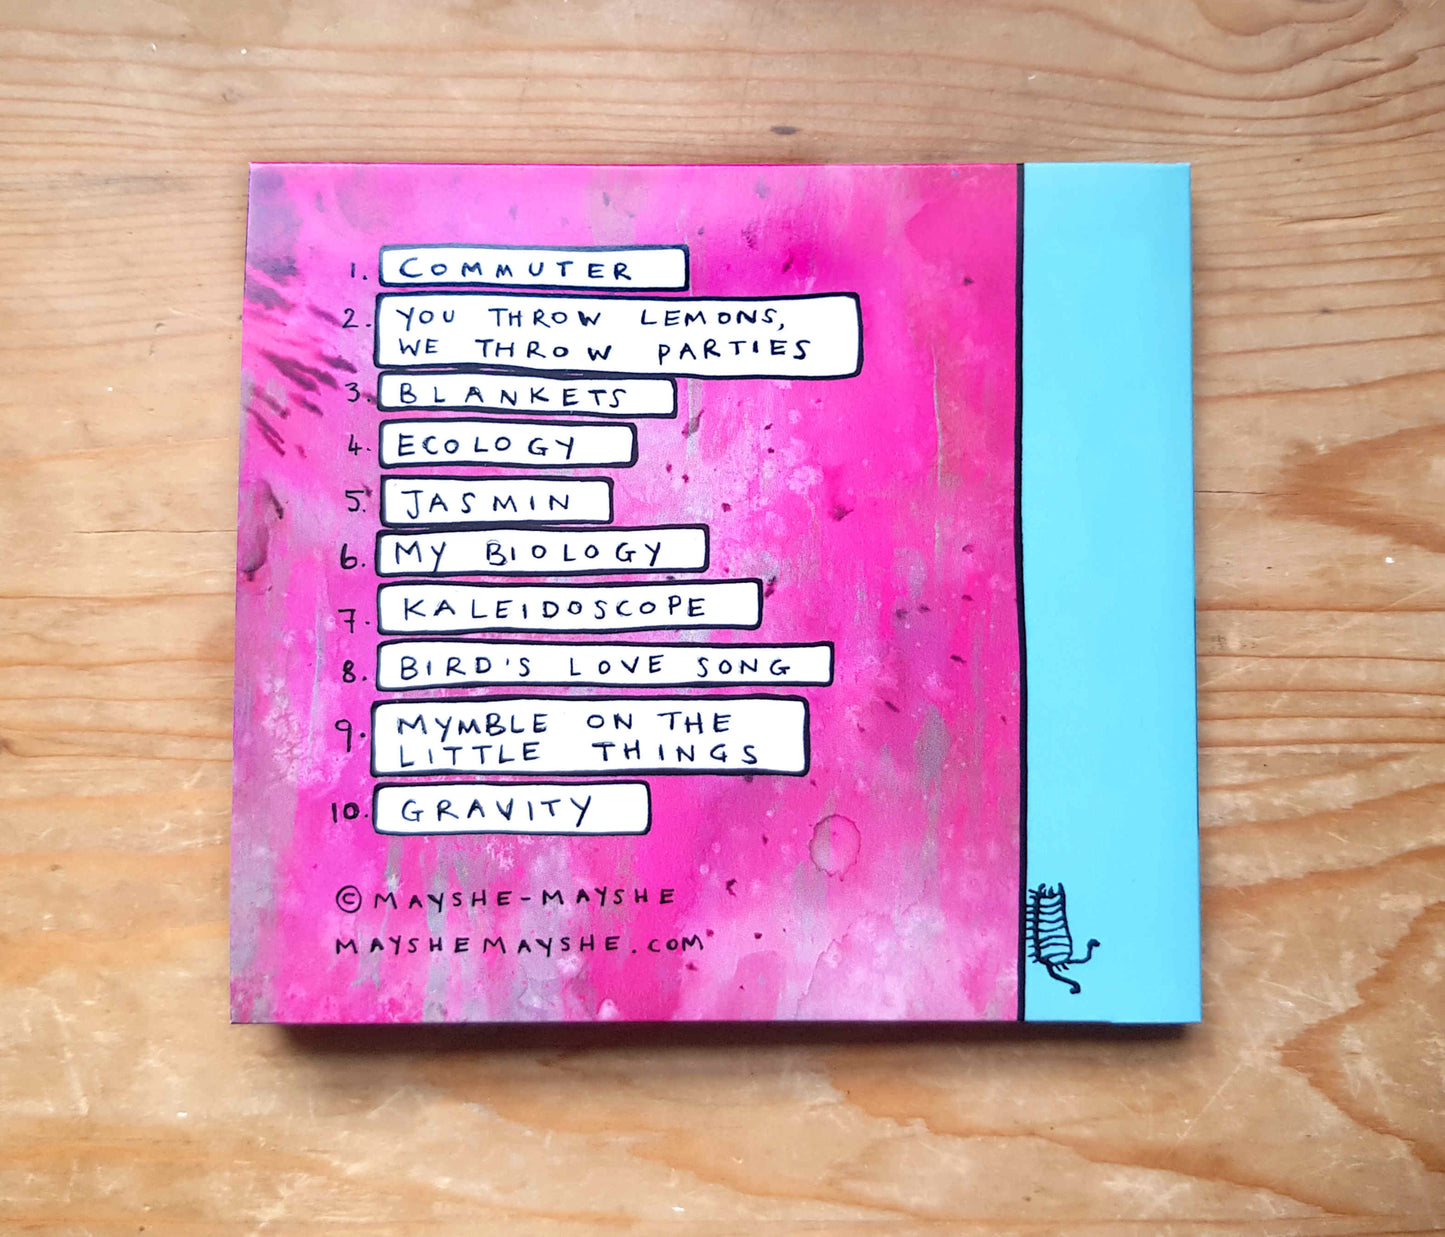 1. COMMUTER
2. YOU THROW LEMONS,
WE THROW PARTIES
3. BLANKETS
4. ECOLOGY
5. JASMIN
6. MY BIOLOGY
7. KALEIDOSCOPE
8. BIRD'S LOVE SONG
9. MYMBLE ON THE
LITTLE THINGS
10. GRAVITY
© MAYSHE-MAYSHE
MAYSHEMAYSHE.COM